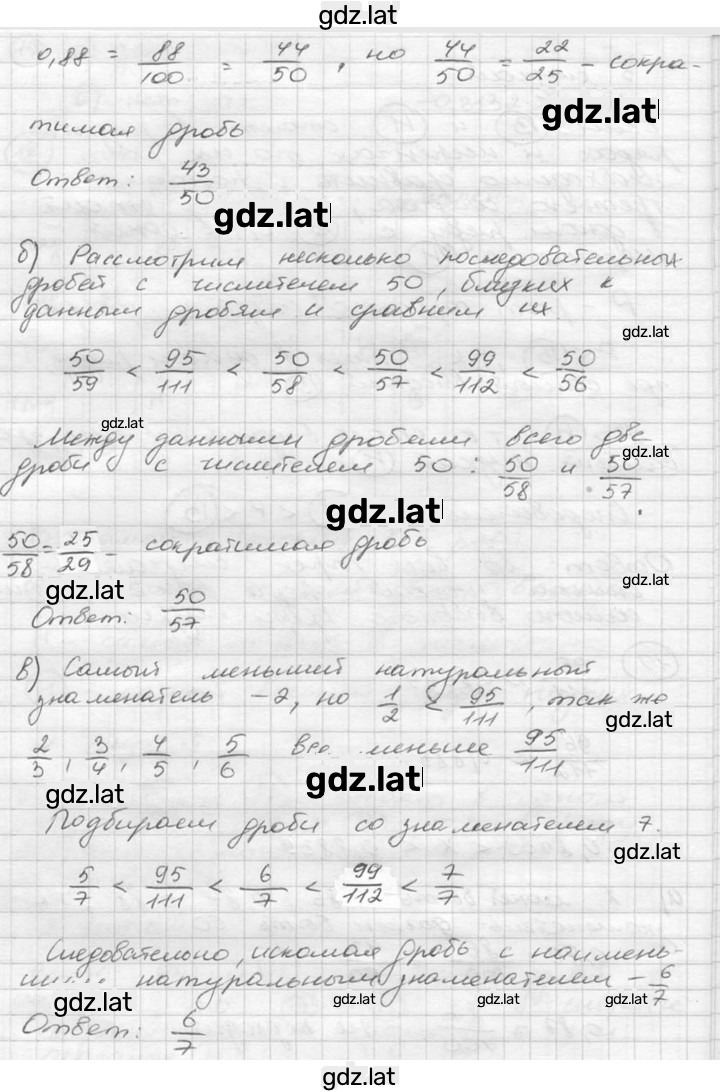 gdz.lat
0,88 = 88/100 = 44/50 , но 44/50 = 22/25 – сокра-
gdz.lat
тимая дробь
Ответ: 43/50
gdz.lat
б) Рассмотрим несколько последовательных
дробей с числителем 50, близких к
данным дробям и сравним их.
gdz.lat
50/59 < 95/111 < 50/58 < 50/57 < 99/112 < 50/56
gdz.lat
Между данными дробями всего две
gdz.lat
дроби с числителем 50 : 50/58 и 50/57.
gdz.lat
50/58 = 25/29 – сократимая дробь
gdz.lat
gdz.lat
Ответ: 50/57
в) Самый меньший натуральный
знаменатель – 2, но 1/2 < 95/111 , так же
gdz.lat
2/3 , 3/4 , 4/5 , 5/6 все меньше 95/111
gdz.lat
gdz.lat
Подбираем дроби со знаменателем 7.
gdz.lat
5/7 < 95/111 < 6/7 < 99/112 < 7/7
Следовательно, искомая дробь с наимень-
натуральным знаменателем – 6/7
gdz.lat
gdz.lat
gdz.lat
gdz.lat
Ответ: 6/7
gdz.lat